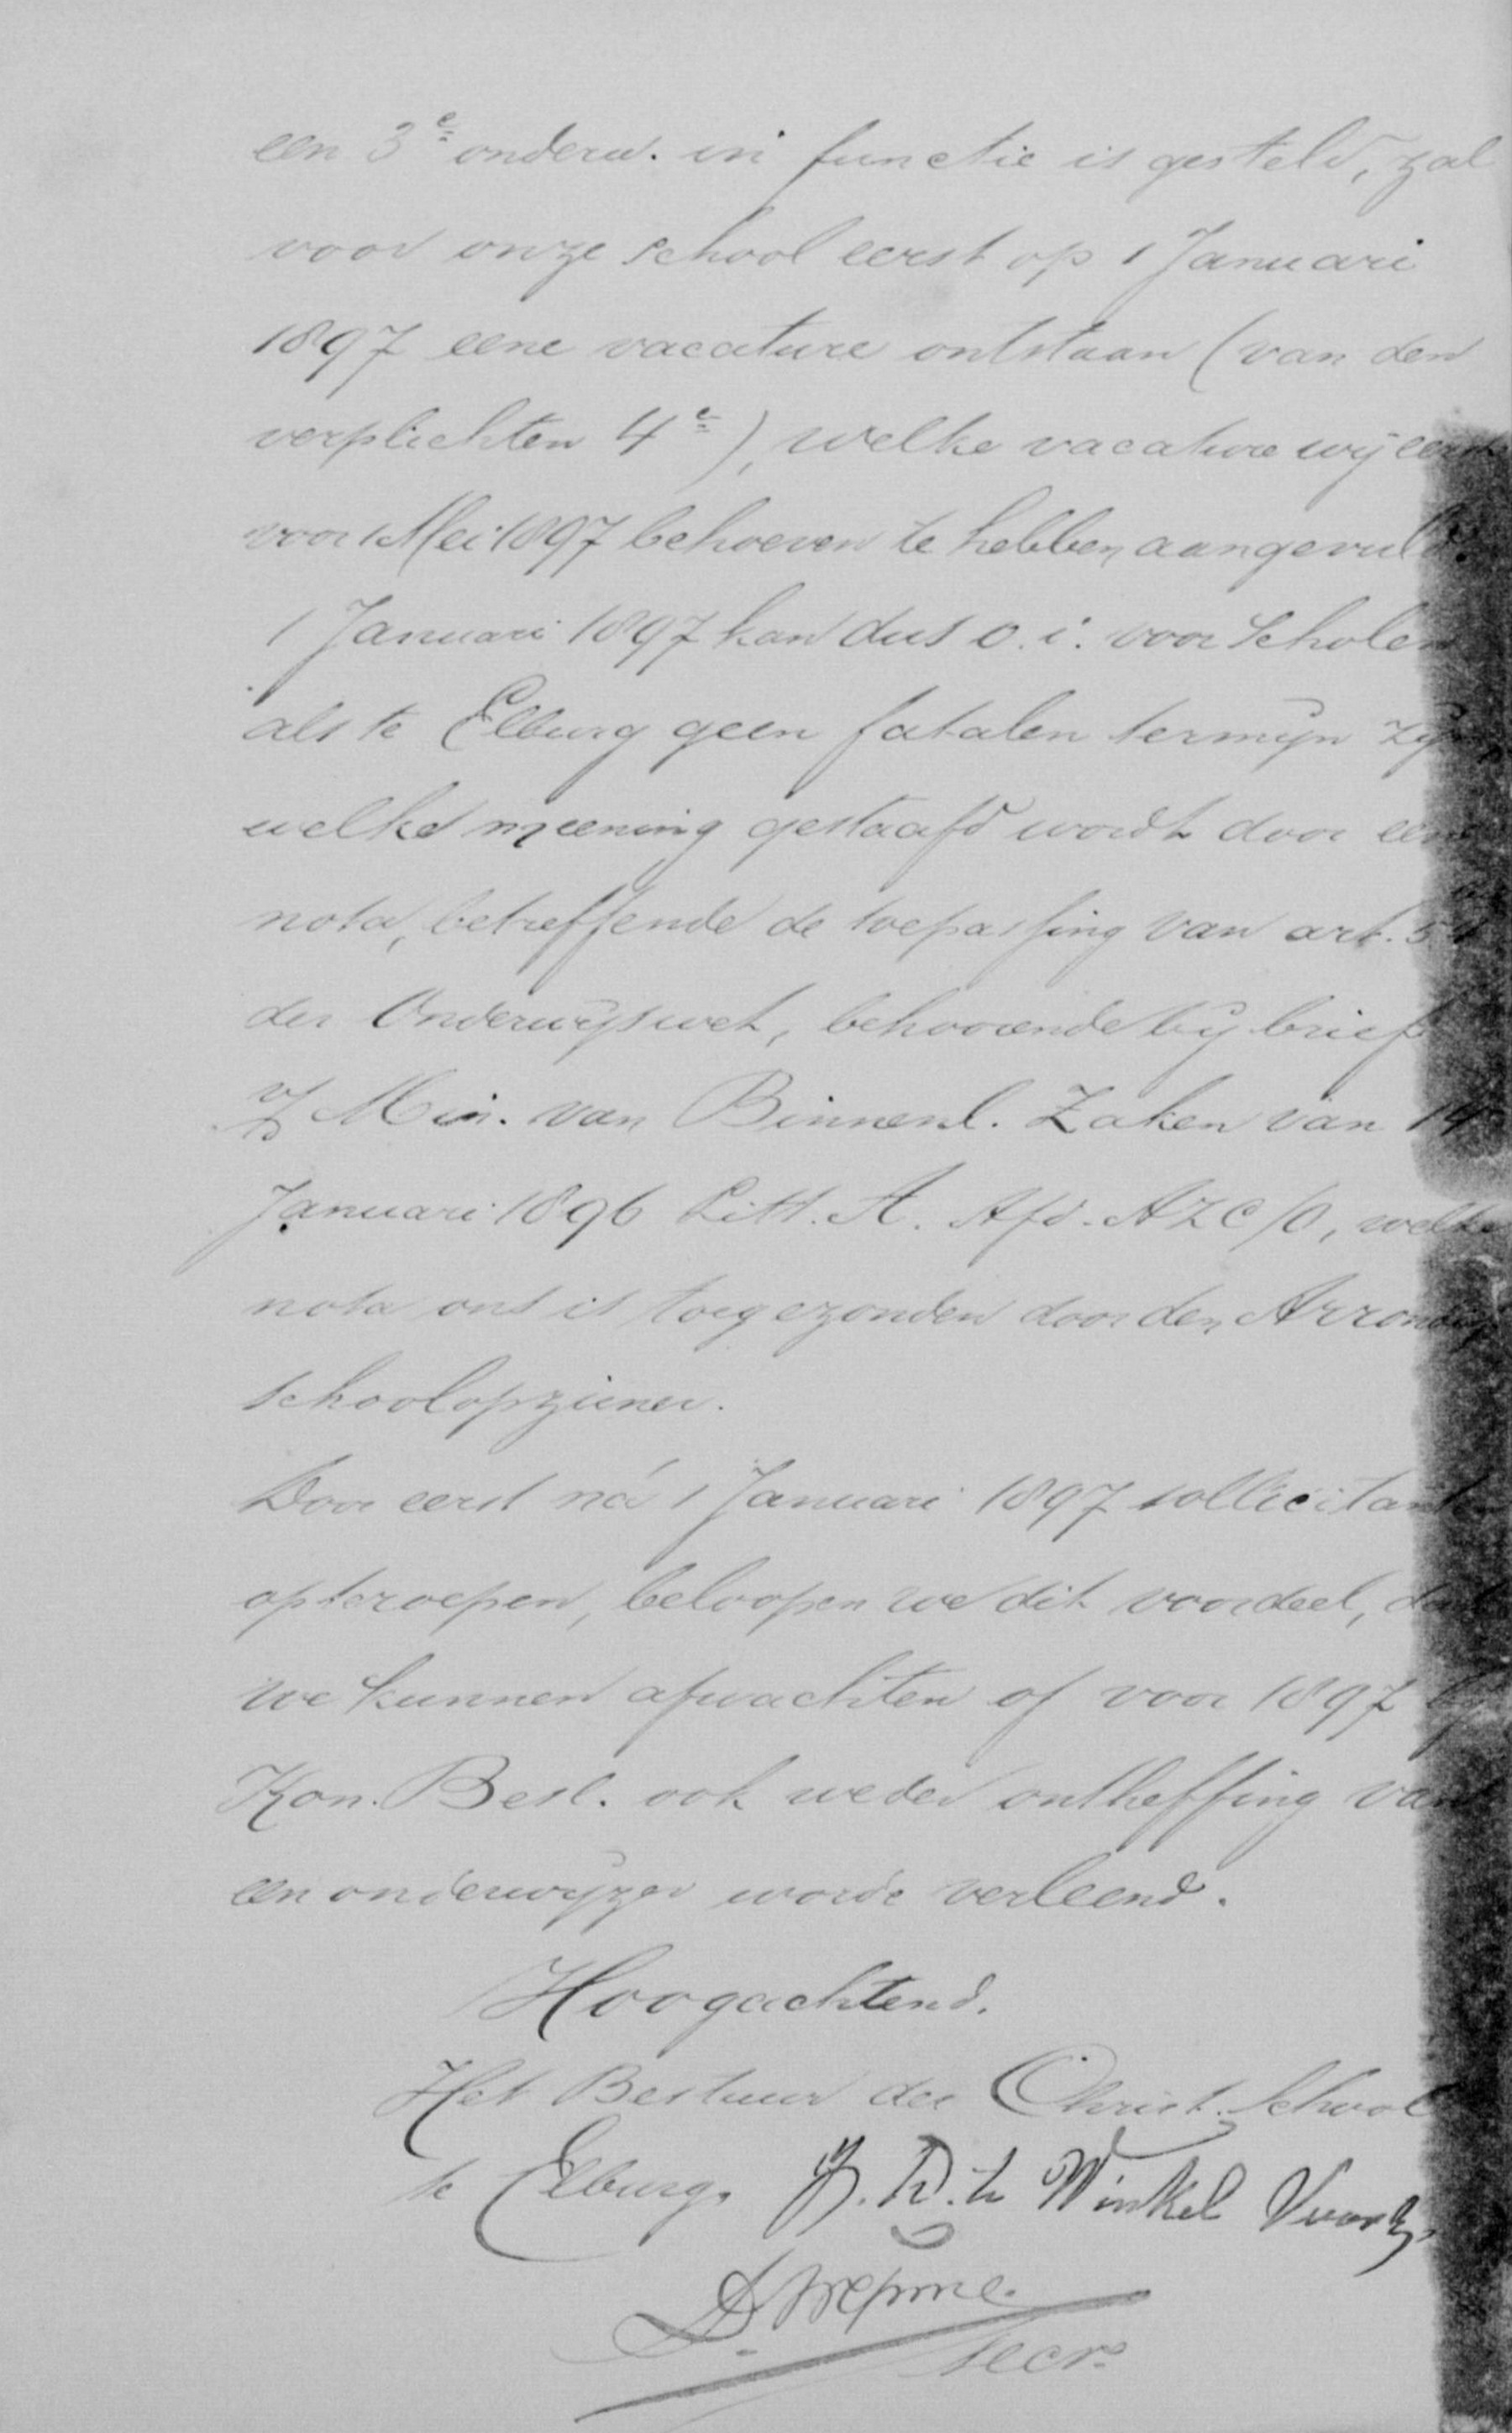 een 3e onderw. in functie is gesteld, zal
voor onze school eerst op 1 Januari
1897 eene vacature ontstaan (van den
verplichten 4e), welke vacature wij eerst
voor 1 Mei 1897 behoeven te hebben aangevuld.
1 Januari 1897 kan dus o.i. voor scholen
als te Elburg geen fatalen termijn zijn,
welke meening gestaafd wordt door eene
nota, betreffende de toepassing van art.
der Onderwijswet, behoorende bij brief
v/d Min. van Binnenl. Zaken van 14
Januari 1896 Litt. A. Afd. AZC/O, welke
nota ons is toegezonden door den Arrond.
schoolopziener.
Door eerst ná 1 Januari 1897 sollicitanten
opteroepen, beloopen we dit voordeel, dat
we kunnen afwachten of voor 1897 bij
Kon. Besl. ook weder ontheffing van
een onderwijzer worde verleend.
Hoogachtend.
Het Bestuur der Christ. School
te Elburg. te Winkel Voorz.
Secr.